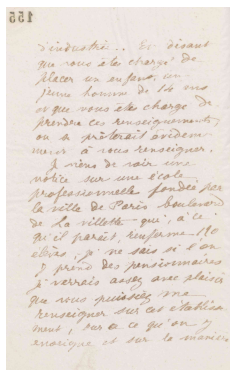 155
d'industrie.. En disant
que vous êtes chargé de
placer un enfant, un
jeune homme de 14 ans
et que vous êtes chargé de
prendre ces renseignements
on se prêterait évidem
ment à vous renseigner.
Je viens de voir une
notice sur une école
professionnelle fondée par
la ville de Paris boulevard
de La Villette qui, à ce
qu'il paraît, renferme
élèves, je ne sais si l'on
y prend des pensionnaires
je verrais assez avec plaisir
que vous puissiez me
renseigner sur cet établisse
ment, sur ce qu'on y
enseigne et sur la manière